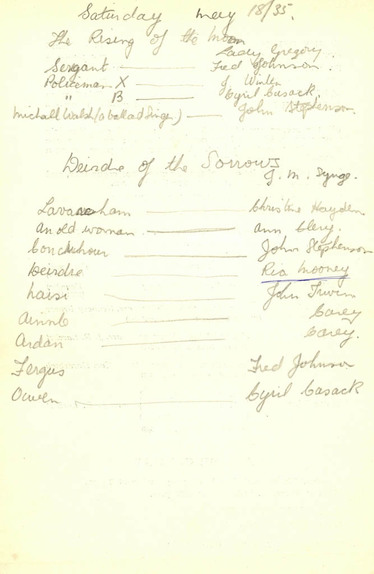 Saturday May 18/35.
The Rising of the Moon
Lady Gregory.
Sergant — Fred Johnson.
Policeman X — J. Winter
" B — Cyril Cusack.
Michall Walsh (a ballad singer) — John Stephenson.
Deirdre of the Sorrows
J. M. Synge.
Lavarcham — Christine Hayden
an old woman — Ann Clery.
Conchubour — John Stephenson
Deirdre — Ria Mooney
Naisi — John Irwin
Ainnle — Carey
Ardan — Carey.
Fergus Fred Johnson
Owen — Cyril Cusack